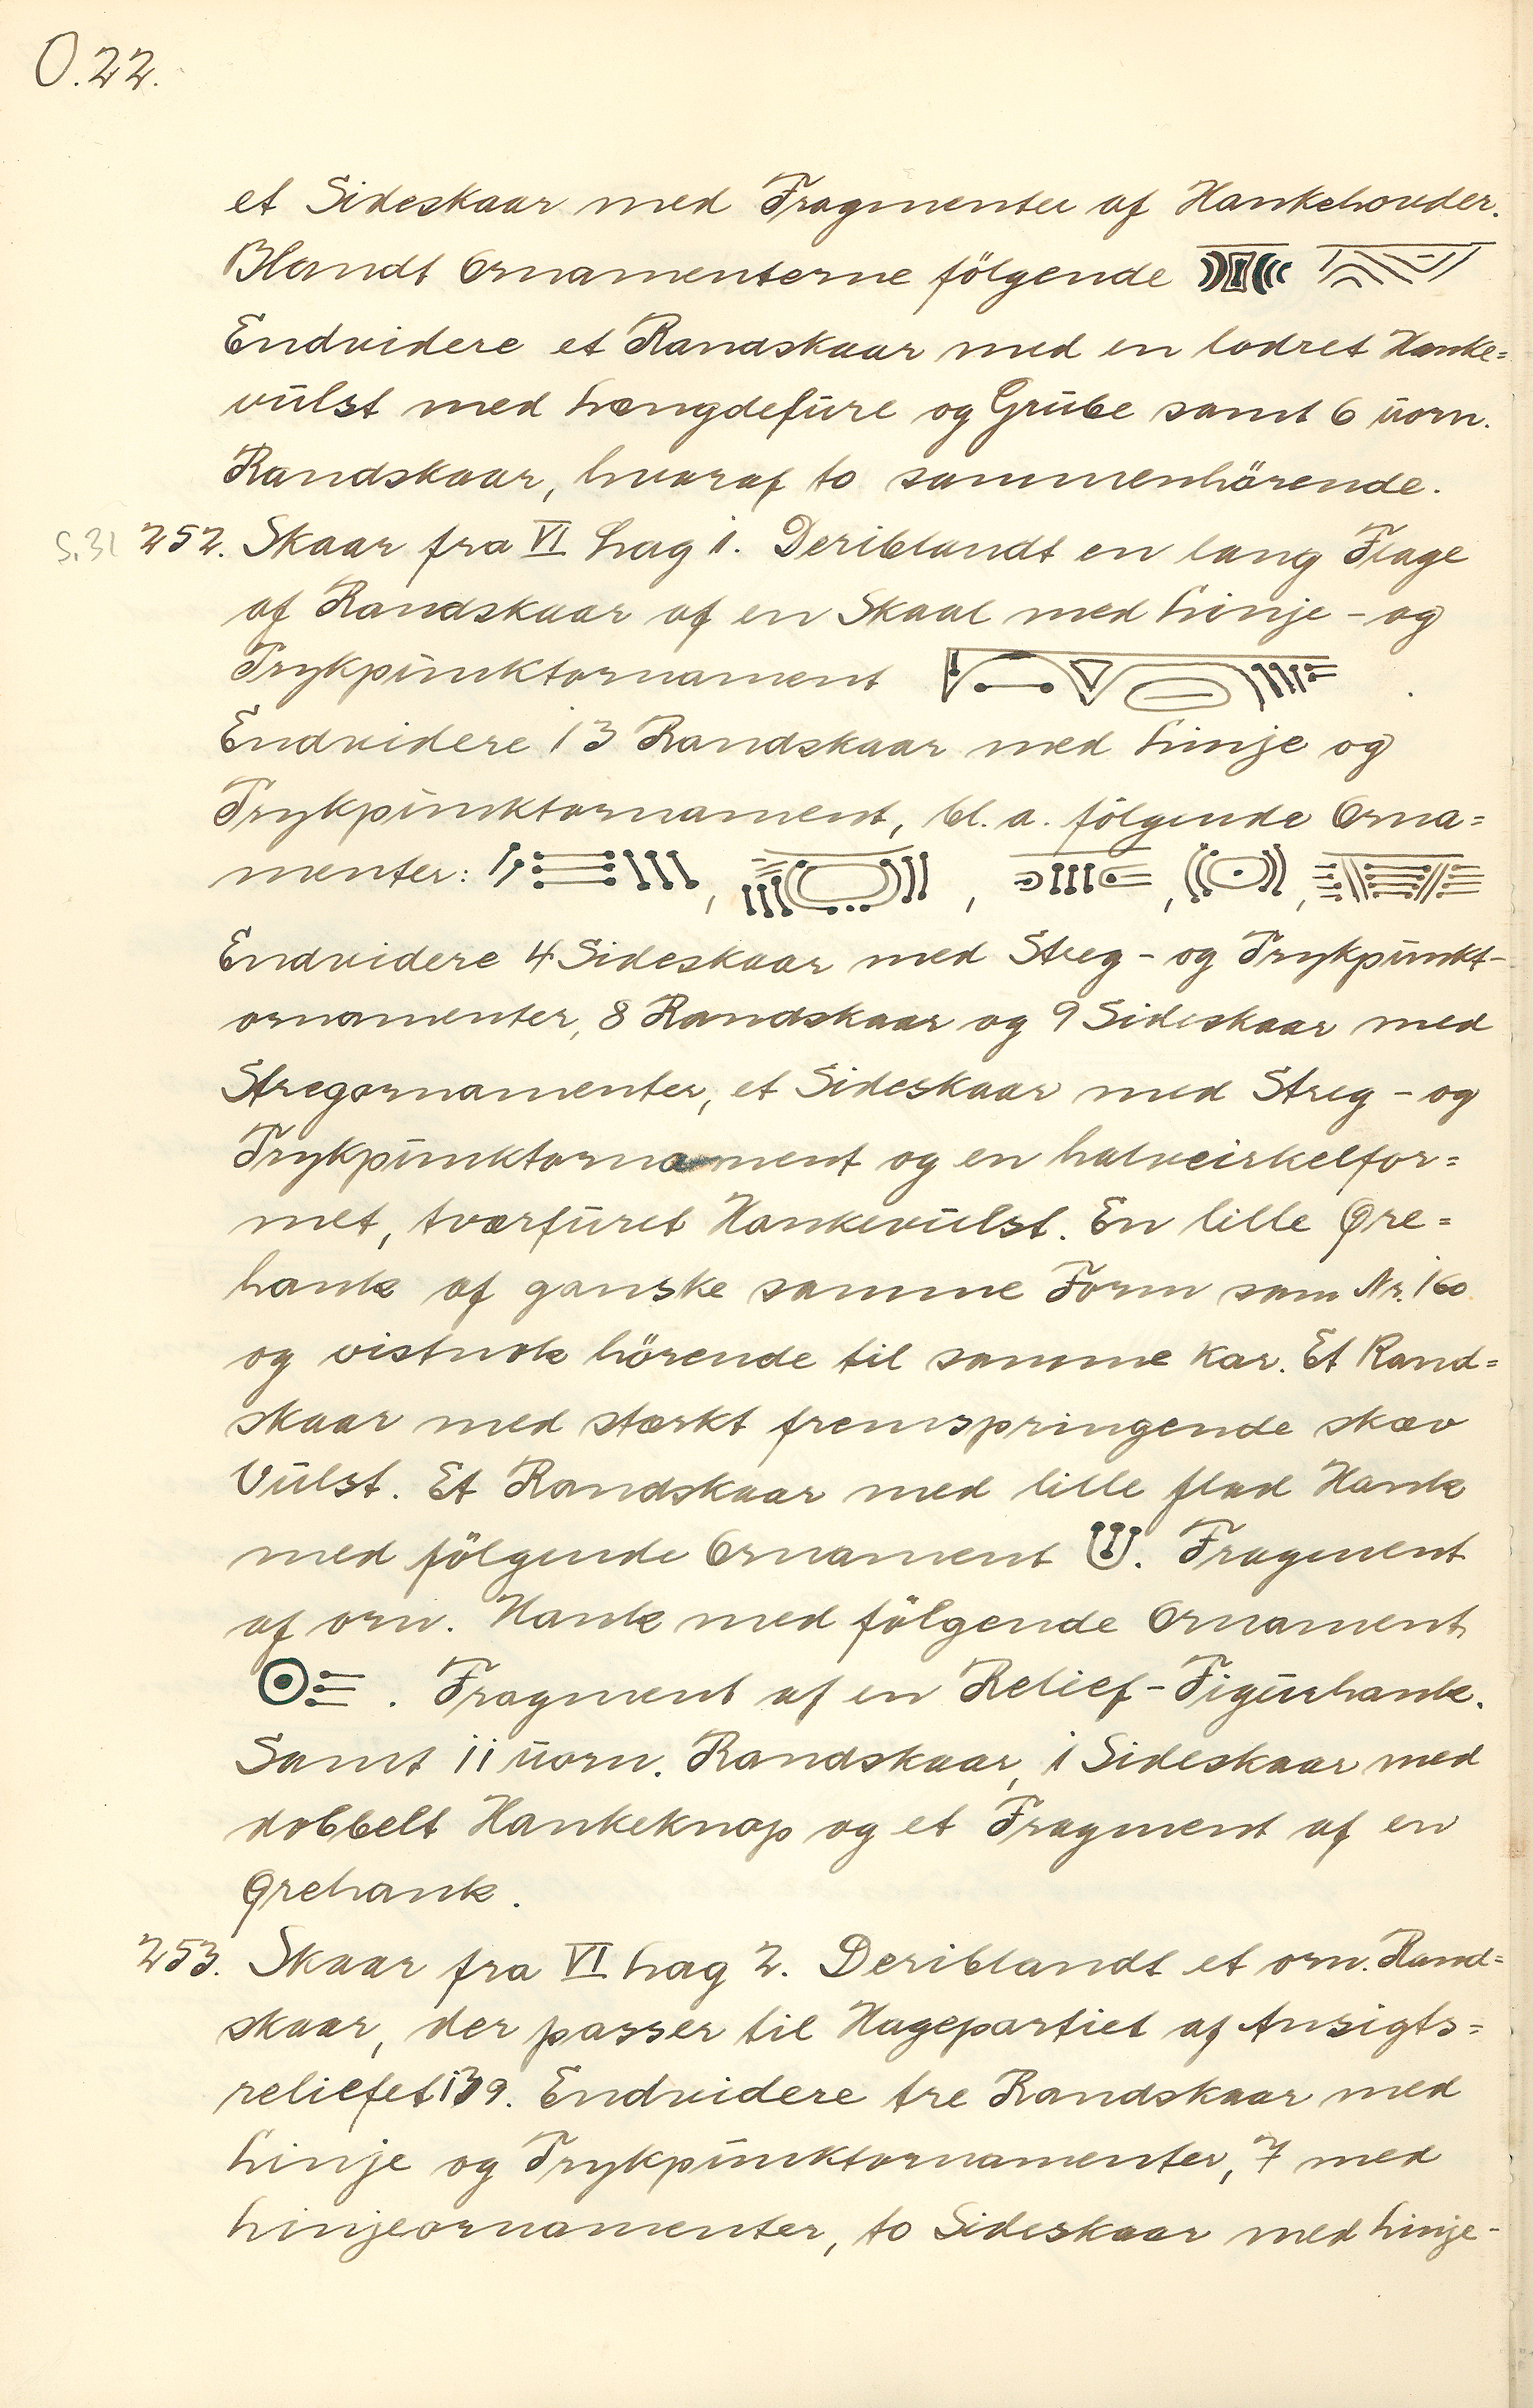 O.22.
et Sideskaar med Fragmenter af Hankehoveder.
Blandt Ornamenterne följgende
Endvidere et Randskaar med en lodret Hanke=
vulst med Længdefure og Grube samt 6 uorn.
Randskaar, hvoraf to sammenhörende.
S.31 252. Skaar fra VI Lag 1. Deriblandt en lang Flage
af Randskaar af en Skaal med Linje - og
Trykpunktornament .
Endvidere 13 Randskaar med Linje og
Trykpunktornament, bl. a. fölgende Orna=
menter: , , , ,
Endvidere 4 Sideskaar med Streg - og Trykpunkt-
ornamenter, 8 Randskaar og 9 Sideskaar med
Stregornamenter, et Sideskaar med Streg - og
Trykpunktornament og en halvcirkelfor=
met, tværfuret Hankevulst. En lille Øre=
hank af ganske samme Form som Nr. 160
og vistnok hörende til samme Kar. Et Rand=
skaar med stærkt fremspringende skæv
Vulst. Et Randskaar med lille flad Hank
med fölgende Ornament . Fragment
af orn. Hank med fölgende Ornament
. Fragment af en Relief-Figurhank.
Samt 11 uorn. Randskaar, 1 Sideskaar med
dobbelt Hankeknop og et Fragment af en
Ørehank.
253. Skaar fra VI Lag 2. Deriblandt et orn. Rand=
skaar, der passer til Hagepartiet af Ansigts=
reliefet 139. Endvidere tre Randskaar med
Linje og Trykpunktornamenter, 7 med
Linjeornamenter, to Sideskaar med Linje-